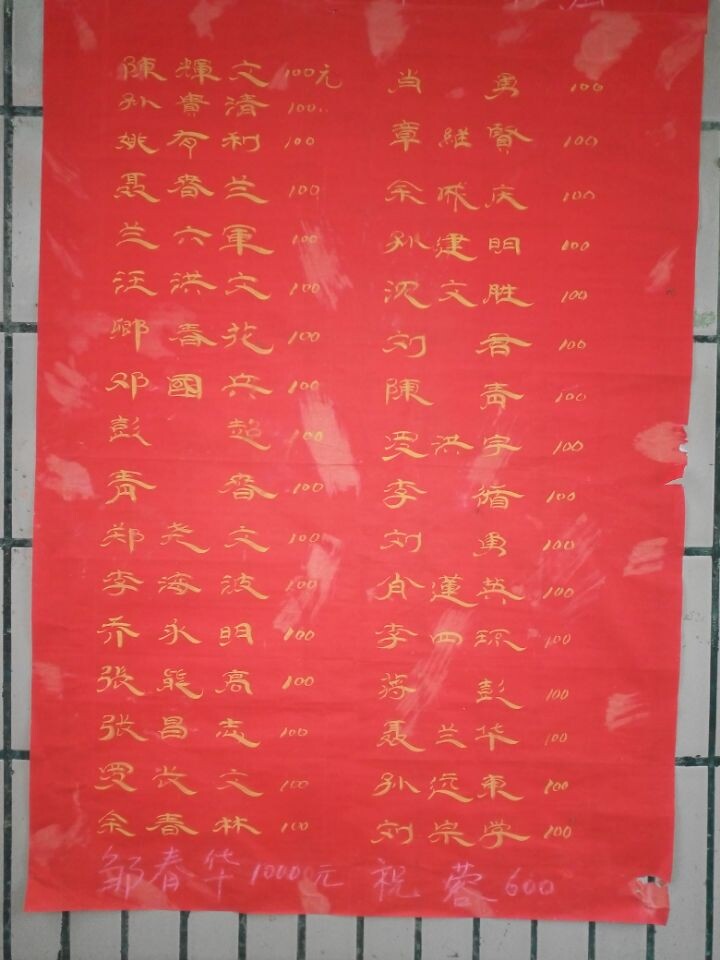 陳輝文 100元
孙貴清 100
姚有利 100
聂春兰 100
兰六軍 100
汪洪文 100
卿春花 100
邓國兵 100
彭超 100
青春 100
郑尧文 100
李海波 100
乔永明 100
張能高 100
张昌志 100
罗长文 100
余春林 100
当勇 100
章継賢 100
余成庆 100
孙建明 100
沈文胜 100
刘君 100
陳青 100
罗洪宇 100
李循 100
刘勇 100
肖蓮英 100
李四琼 100
蒋彭 100
聂兰华 100
孙远東 100
刘宗学 100
邹春华 10000元 祝蓉 600